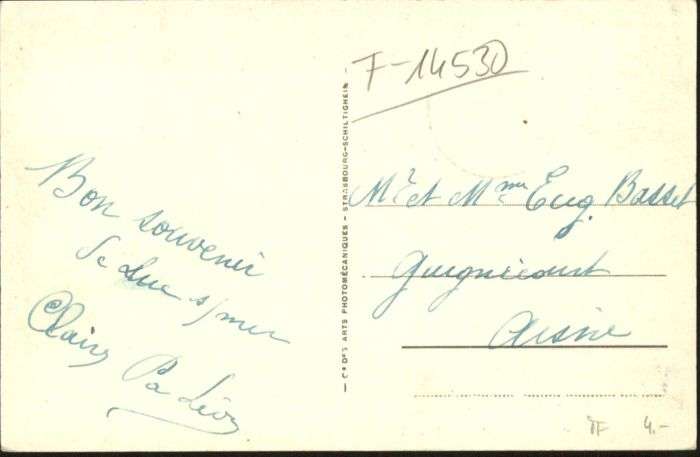 F-14530
Bon souvenir
de Luc s/mer
Claire Pa Léon
— Cie DES ARTS PHOTOMÉCANIQUES - STRASBOURG-SCHILTIGHEIM —
Mr et Mme Eug. Basset
Guignicourt
Aisne
TF 4.-